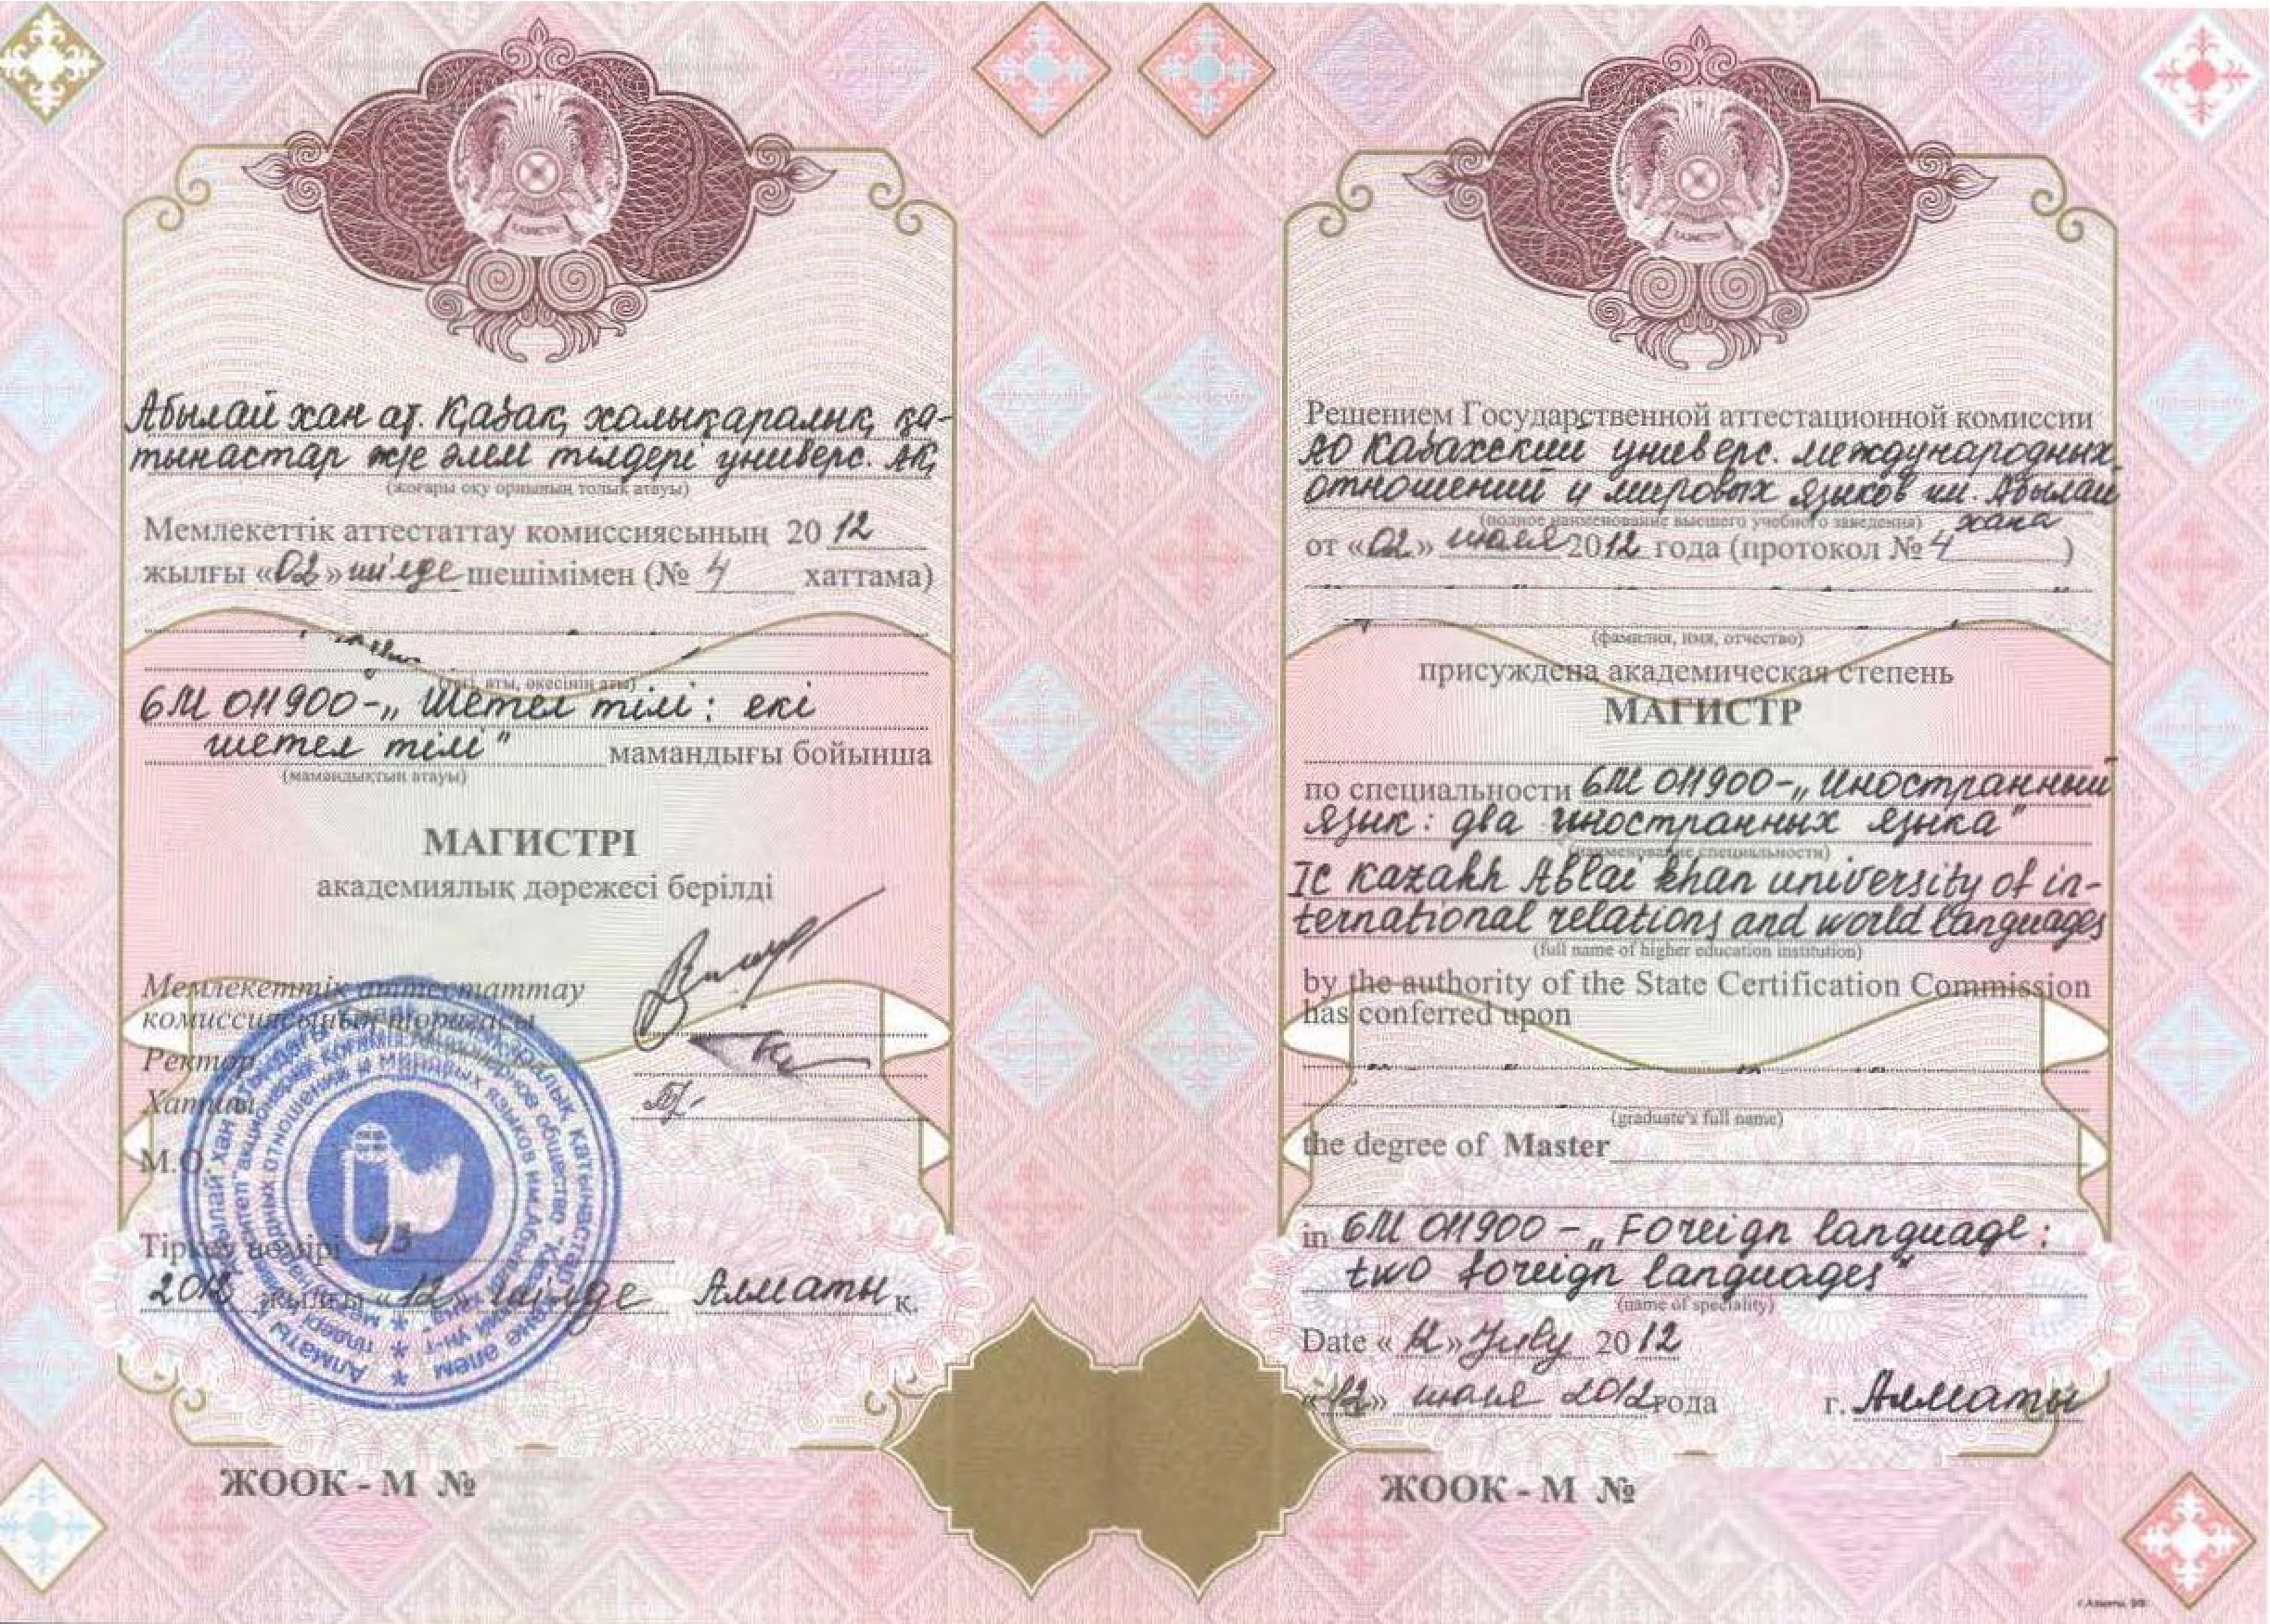 Абылай хан ат. Қазақ халықаралық қа-
тынастар және әлем тілдері универс. АҚ
(жоғары оқу орнының толық атауы)
Мемлекеттік аттестаттау комиссиясының 2012
жылғы «02» шілде шешімімен (№ 4 хаттама)
(тегі, аты, әкесінің аты)
6М 011900-„Шетел тілі: екі
шетел тілі" мамандығы бойынша
(мамандықтың атауы)
МАГИСТРІ
академиялық дәрежесі берілді
Мемлекеттік аттестаттау
комиссиясының төрағасы
Ректор
Хатшы
М.О.
Тіркеу нөмірі 93
2012 жылғы «12» шілде Алматы қ.
ЖООК - М №
Решением Государственной аттестационной комиссии
АО Казахский универс. международных
отношений и мировых языков им. Абылай
хана
(полное наименование высшего учебного заведения)
от «02» июля 2012 года (протокол № 4 )
(фамилия, имя, отчество)
присуждена академическая степень
МАГИСТР
по специальности 6М 011900-„Иностранный
язык: два иностранных языка"
(наименование специальности)
IC Kazakh Ablai khan university of in-
ternational relations and world languages
(full name of higher education institution)
by the authority of the State Certification Commission
has conferred upon
(graduate's full name)
the degree of Master
in 6М 011900 - „Foreign language:
two foreign languages"
(name of speciality)
Date «12» July 2012
«12» июля 2012 года г. Алматы
ЖООК - М №